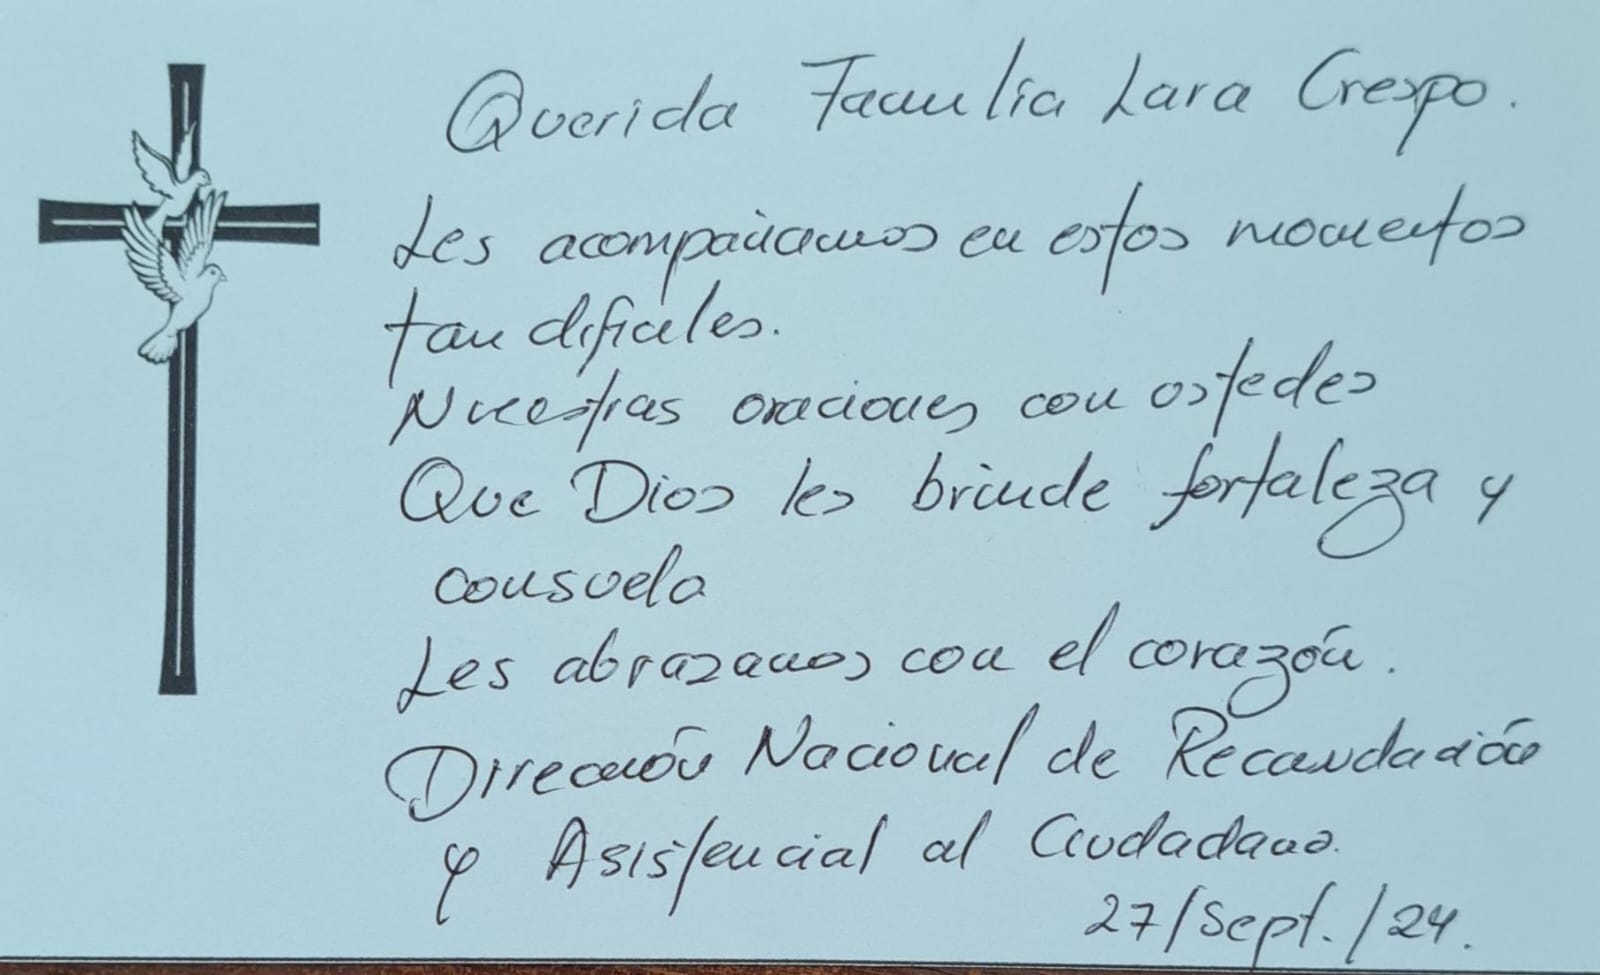 Querida Familia Lara Crespo.
Les acompañamos en estos momentos
tan difíciles.
Nuestras oraciones con ustedes
Que Dios les brinde fortaleza y
consuelo
Les abrazamos con el corazón.
Dirección Nacional de Recaudación
y Asistencial al Ciudadano.
27/Sept./24.